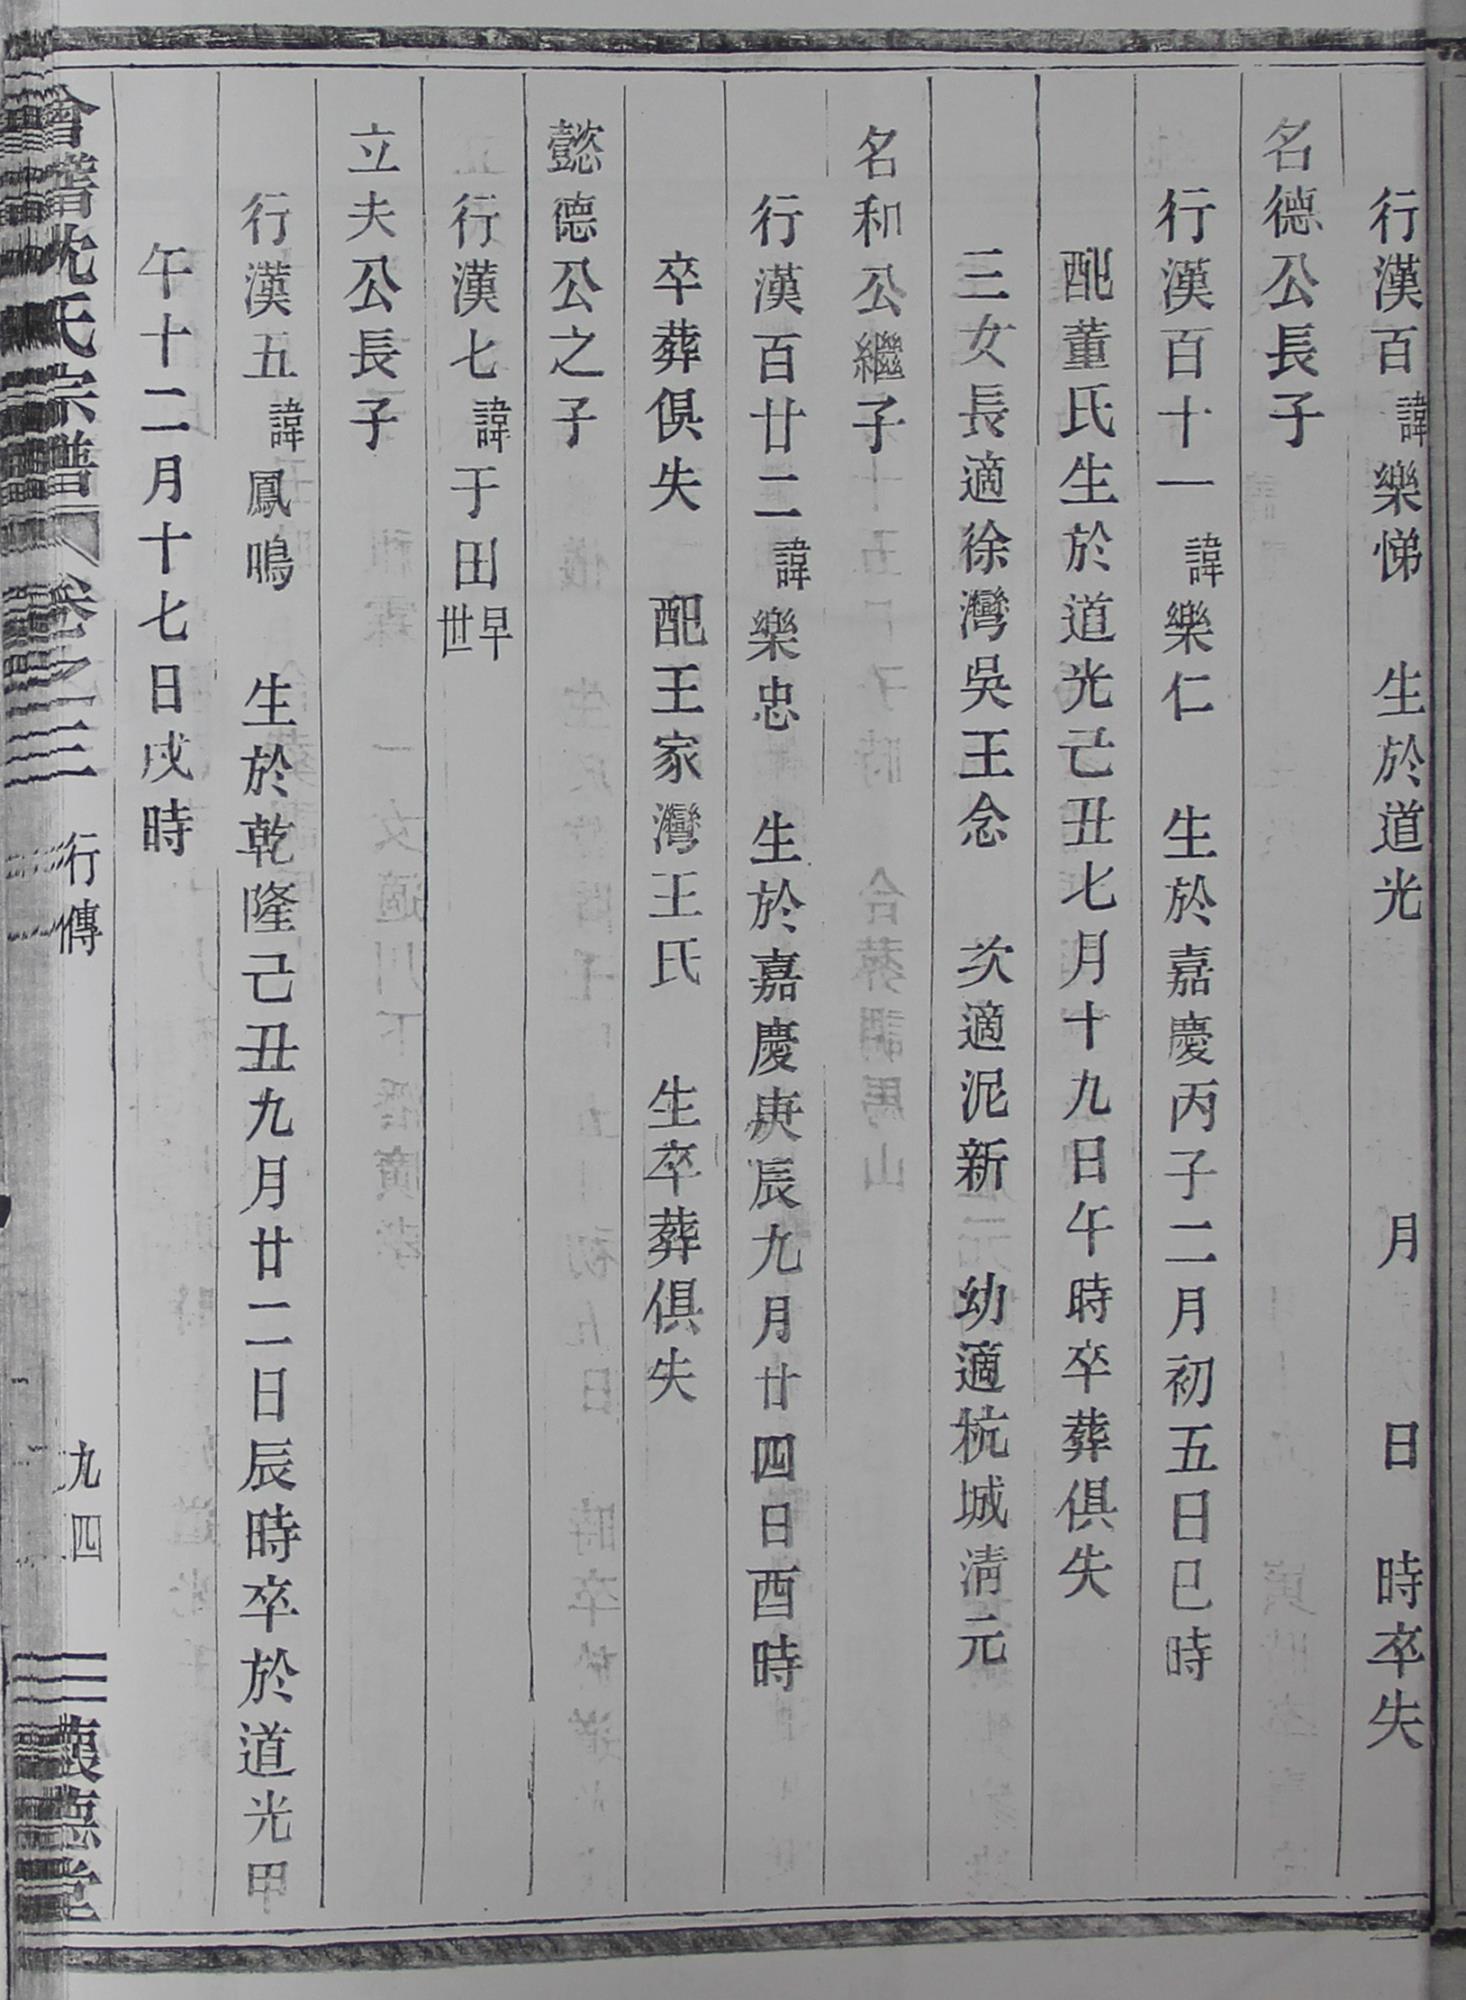 行漢百諱樂悌　生於道光　月　日　時卒失
名德公長子
行漢百十一諱樂仁　生於嘉慶丙子二月初五日巳時
配董氏生於道光己丑七月十九日午時卒葬俱失
三女長適徐灣吳王念　次適泥新　幼適杭城淸元
名和公繼子
行漢百廿二諱樂忠　生於嘉慶庚辰九月廿四日酉時
卒葬俱失　配王家灣王氏　生卒葬俱失
懿德公之子
行漢七諱于田早世
立夫公長子
行漢五諱鳳鳴　生於乾隆己丑九月廿二日辰時卒於道光甲
午十二月十七日戌時
會稽沈氏宗譜　卷之三　行傳　九四　德堂